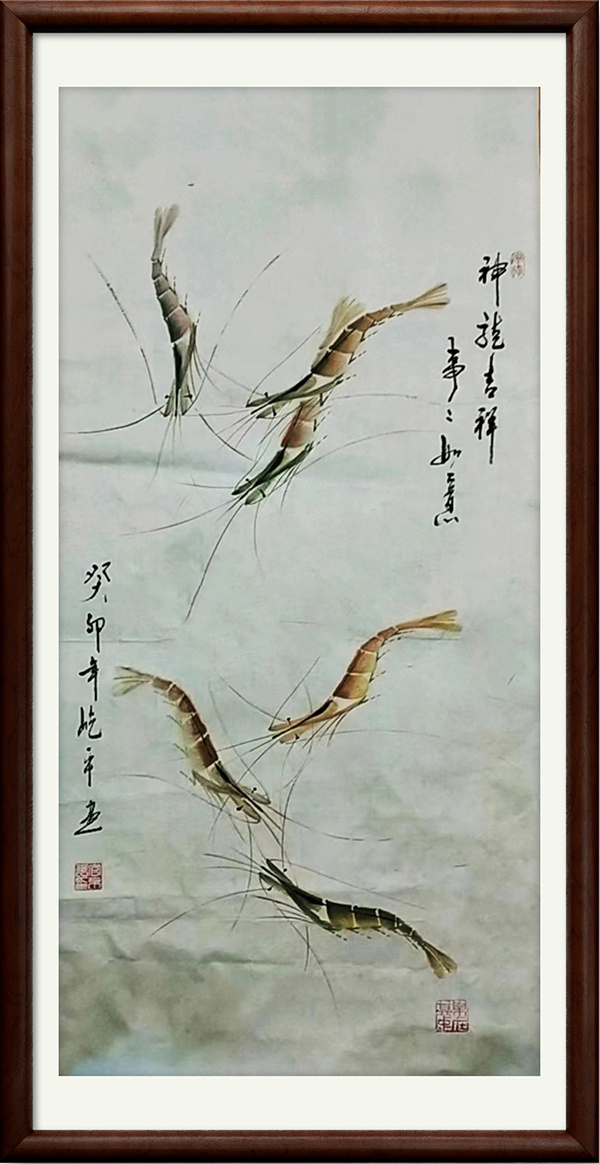 神龍吉祥
事々如意
癸卯年平画